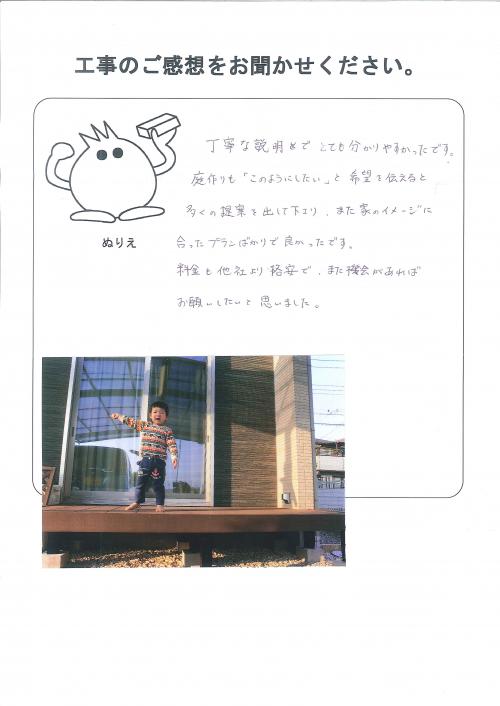 工事のご感想をお聞かせください。
丁寧な説明めで とても分かりやすかったです。
庭作りも「このようにしたい」と 希望を伝えると
多くの提案を出して下エリ、また家のイメージに
合ったプランばかりで良かったです。
料金も他社より格安で、また機会があれば
お願いしたいと思いました。
ぬりえ